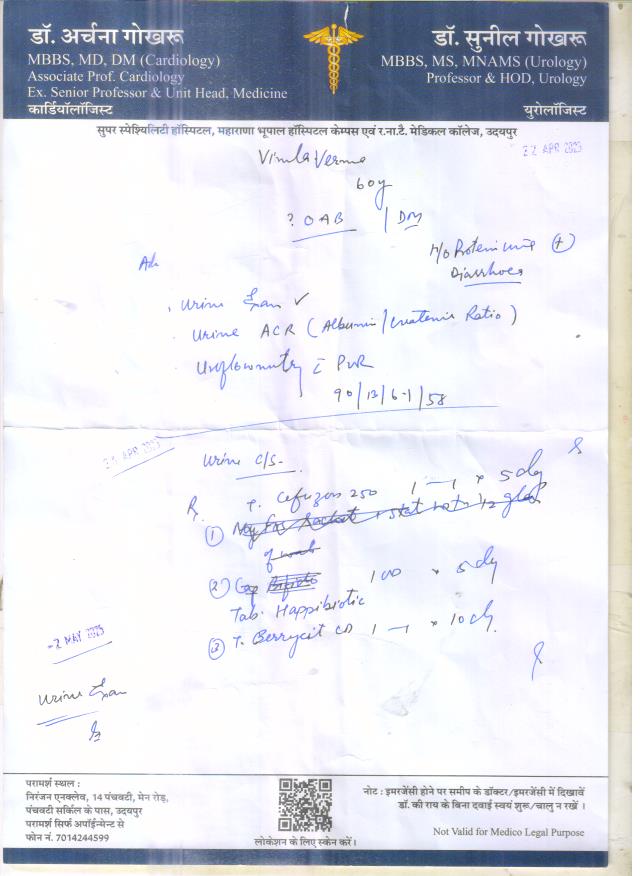 डॉ. अर्चना गोखरू
MBBS, MD, DM (Cardiology)
Associate Prof. Cardiology
Ex. Senior Professor & Unit Head, Medicine
कार्डियोलॉजिस्ट
डॉ. सुनील गोखरू
MBBS, MS, MNAMS (Urology)
Professor & HOD, Urology
युरोलॉजिस्ट
सुपर स्पेशियलिटी हॉस्पिटल, महाराणा भूपाल हॉस्पिटल केम्पस एवं र.ना.टै. मेडिकल कॉलेज, उदयपुर
22 APR 2025
Vimla Verma
60y
? OAB / DM
H/o Proteinuria (+)
Diarrhoea
Adv
Urine Exam ✓
Urine ACR (Albumin/Creatinine Ratio)
Uroflowmetry c̄ PVR
90/13/6.1/58
APR 2025
Urine C/S
Rx
T. Cefuzon 250 1 — 1 x 5 day
(1)
(2)
1 OD x 5 dy
Tab. Happibiotic
(3) T. Berrycit CD 1 — 1 x 10 d
-2 MAY 2025
Urine Exam
परामर्श स्थल :
निरंजन एनक्लेव, 14 पंचवटी, मेन रोड़,
पंचवटी सर्किल के पास, उदयपुर
परामर्श सिर्फ अपॉईन्मेन्ट से
फोन नं. 7014244599
लोकेशन के लिए स्केन करें।
नोट : इमरजेंसी होने पर समीप के डॉक्टर/इमरजेंसी में दिखावें
डॉ. की राय के बिना दवाई स्वयं शुरू/चालु न रखें।
Not Valid for Medico Legal Purpose